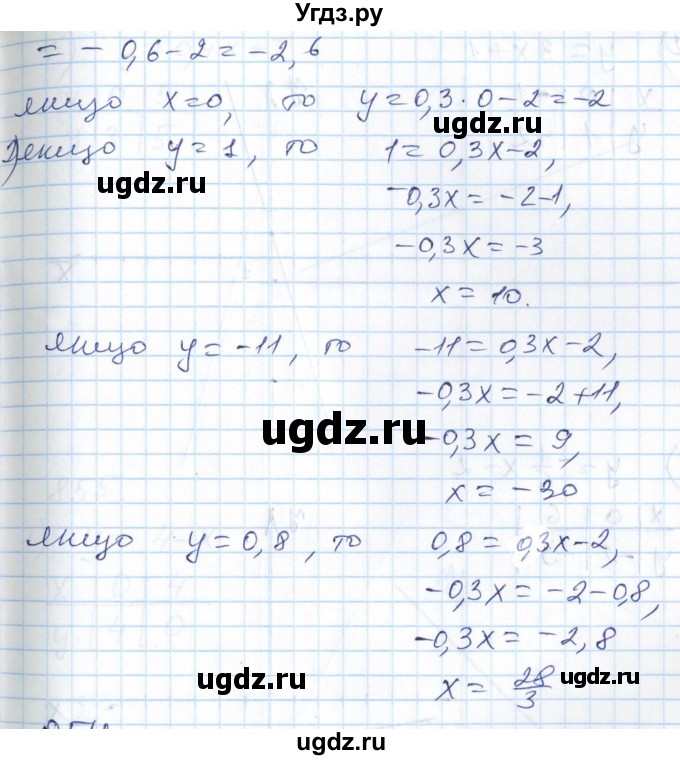 Угдз.ру
= - 0,6 - 2 = -2,6
якщо x=0, то y = 0,3 · 0 - 2 = -2
ugdz.ru
2) якщо y = 1, то 1 = 0,3x - 2,
ugdz.ru
-0,3x = -2-1,
-0,3x = -3
x = 10.
якщо y = -11, то -11 = 0,3x - 2,
-0,3x = -2+11,
ugdz.ru
-0,3x = 9,
x = -30
якщо y = 0,8, то 0,8 = 0,3x - 2,
-0,3x = -2 - 0,8,
-0,3x = -2,8
x = 28/3
ugdz.ru
ugdz.ru
ugdz.ru